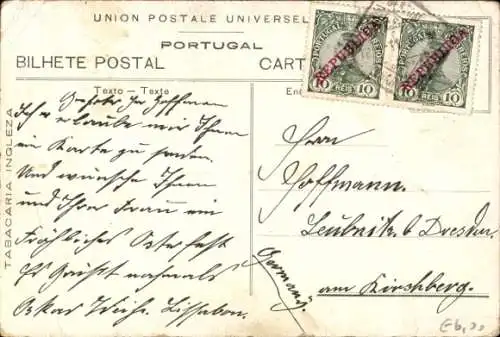 UNION POSTALE UNIVERSEL
PORTUGAL
BILHETE POSTAL
CART
Texto - Texte
En
TABACARIA INGLEZA
PORTUGAL
REPUBLICA
10 REIS 10
PORTUGAL
REPUBLICA
10 REIS 10
Geehrter Herr Hoffmann
Ich erlaube mir Ihnen
ein Karte zu senden.
Und wünsche Ihnen
und Ihrer Frau ein
Fröhliches Osterfest
Es Grüsst nochmals
Oskar Lissabon.
Herrn
Hoffmann.
Leubnitz b Dresden.
am Kirshberg.
Germany